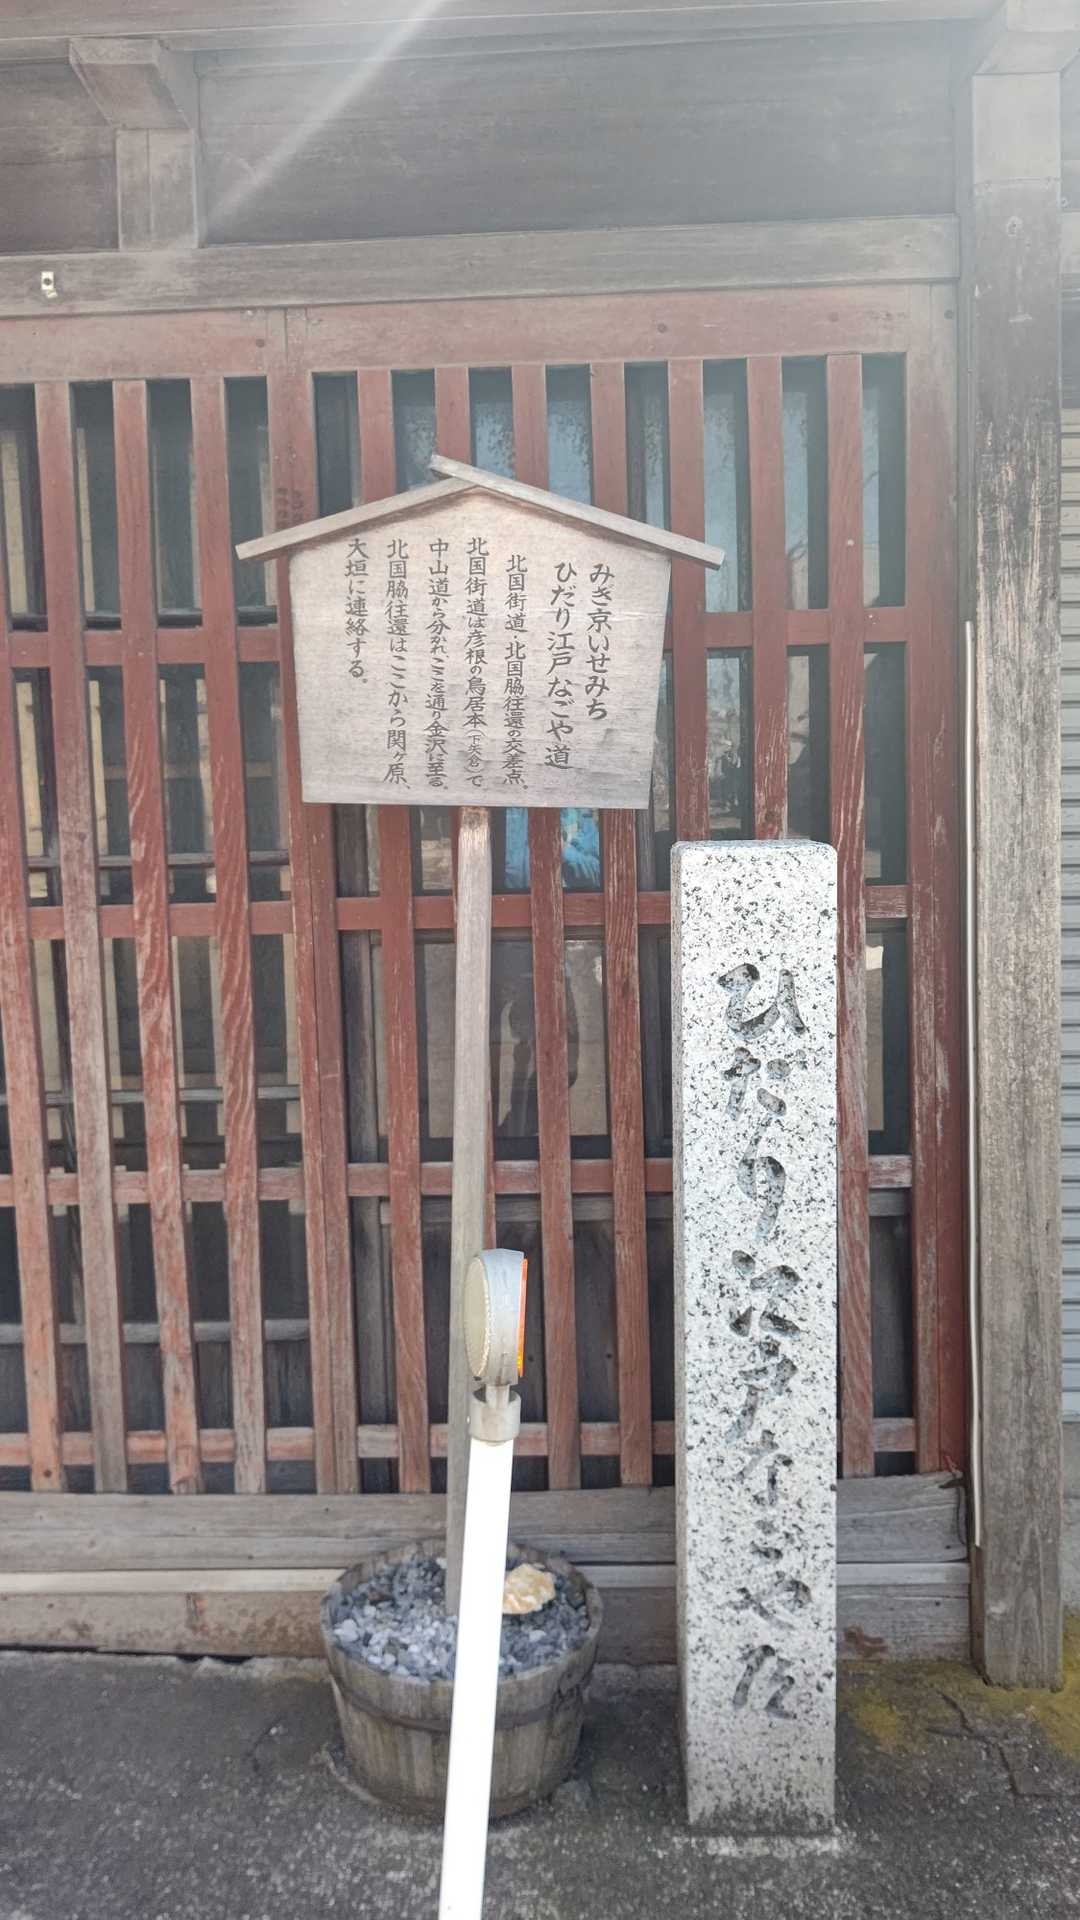 みぎ京いせみち
ひだり江戸なごや道
北国街道・北国脇往還の交差点。
北国街道は彦根の鳥居本(下矢倉)で
中山道から分かれ、ここを通り金沢に至る。
北国脇往還はここから関ヶ原、
大垣に連絡する。
ひだり江戸なごや道